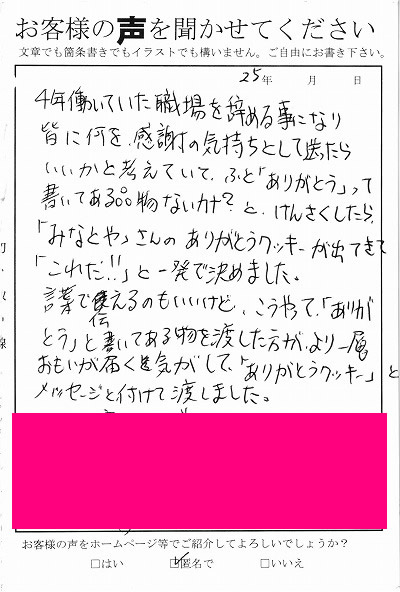 お客様の声を聞かせてください
文章でも箇条書きでもイラストでも構いません。ご自由にお書き下さい。
25年 月 日
4年働いていた職場を辞める事になり
皆に何を感謝の気持ちとして送たら
いいかと考えていて、ふと「ありがとう」って
書いてある物ないカナ?と、けんさくしたら、
「みなとや」さんのありがとうクッキーが出てきて
「これだ!!」と一発で決めました。
言葉で伝えるのもいいけど、こうやって、「ありが
とう」と書いてある物を渡した方が、より一層
おもいが届く気がして、「ありがとうクッキー」と
メッセージと付けて渡しました。
お客様の声をホームページ等でご紹介してよろしいでしょうか?
□はい □匿名で □いいえ